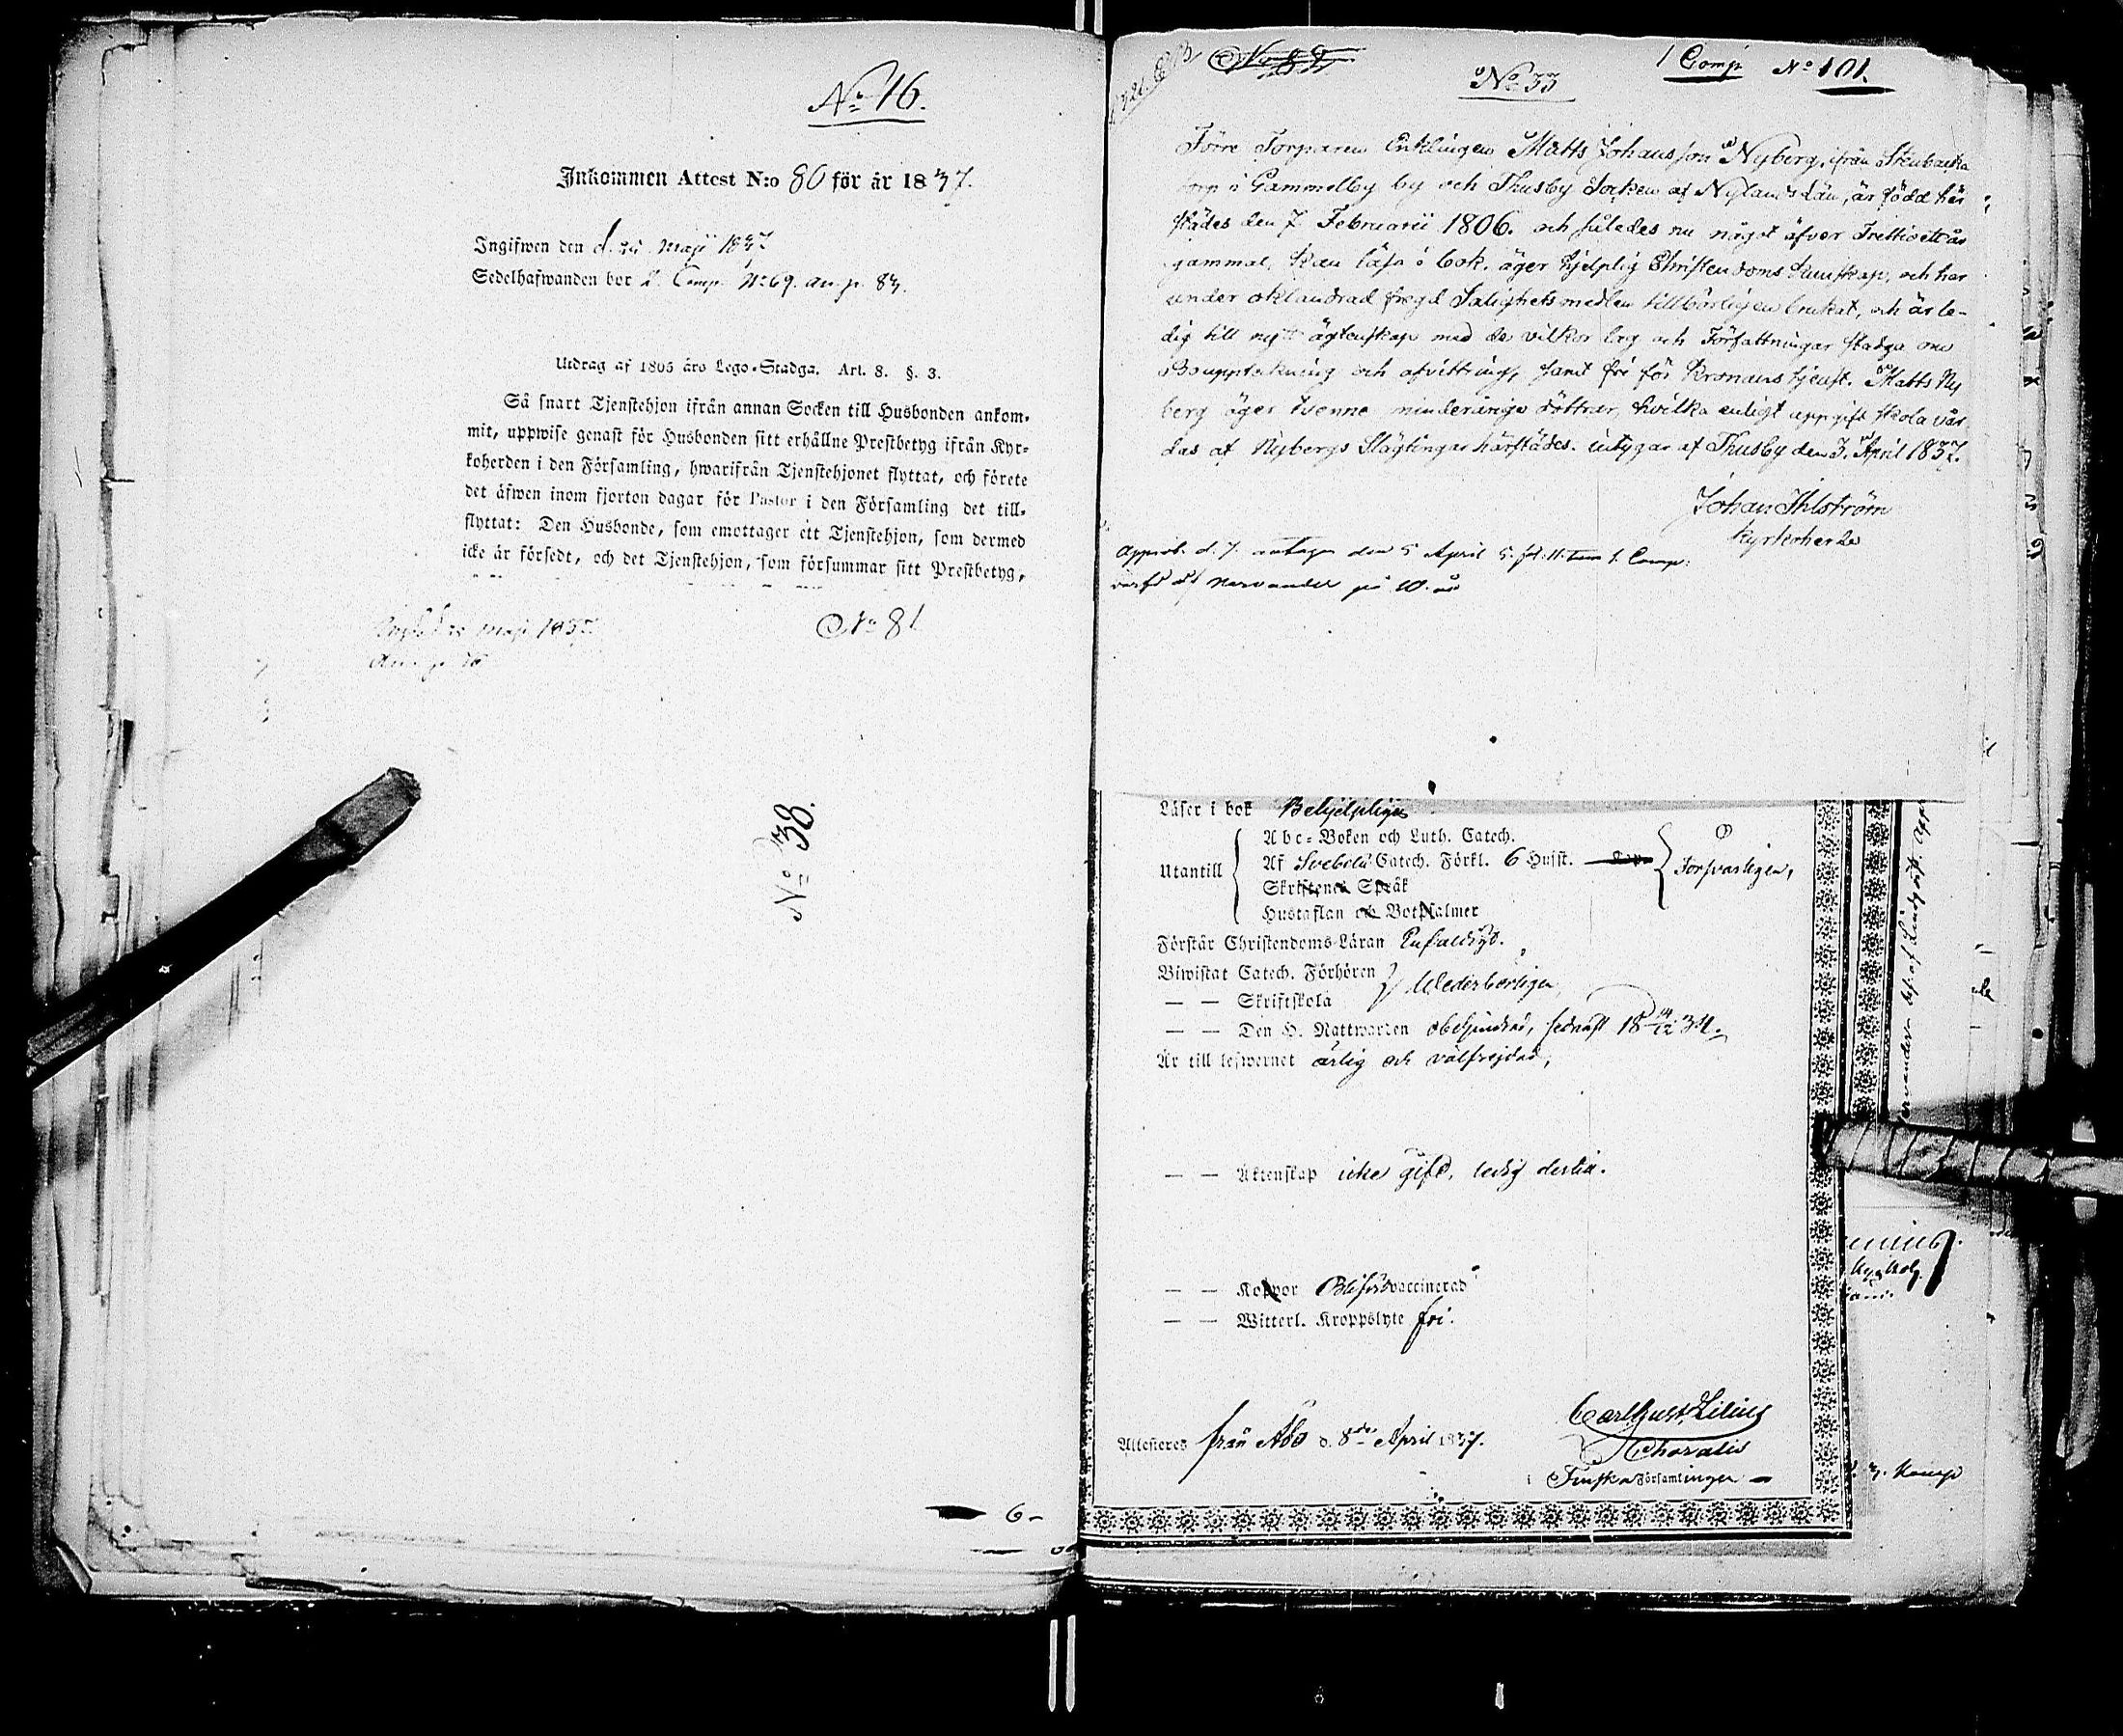 No 16.
Inkommen Attest N:o 80 för år 1837.
Ingifwen den d. Maji 1837
Sedelhafwanden bor 2 Comp. No 69. an. p. 83.
Utdrag af 1805 års Lego-Stadga. Art. 8. §. 3.
Så snart Tjenstehjon ifrån annan Socken till Husbonden ankom-
mit, uppwise genast för Husbonden sitt erhållne Prestbetyg ifrån Kyr-
koherden i den Församling, hwarifrån Tjenstehjonet flyttat, och förete
det äfwen inom fjorton dagar för Pastor i den Församling det till-
flyttat: Den Husbonde, som emottager ett Tjenstehjon, som dermed
icke är försedt, och det Tjenstehjon, som försummar sitt Prestbetyg,
Maji 1837
No 81
No 38.
6-
No 33
1 Comp. No 101.
Förre Torparen Enklingen Matts Johansson Nyberg, ifrån Stenbacka
torp i Gammelby by och Thusby Socken af Nylands Län, är född här
städes den 7 Februarii 1806. och således nu något öfver Trettioett år
gammal, kan läsa i bok, äger hjelplig Christendoms kunskap, och har
under oklandrad fregd Salighetsmedlen tillbörligen brukat, och är le-
dig till nytt ägtenskap med de vilkor Lag och Författningar stadga om
Bouppteckning och afvittring, samt fri för Kronans tjenst. Matts Ny
berg äger tvenne minderåriga döttrar, hvilka enligt uppgift skola vår
das af Nybergs Slägtingar härstädes. intygar af Thusby den 3. April 1837.
Johan Ihlström
Kyrkoherde
Approb. d. 7. antagen den 5 April
af Nervander på 10. år
Läser i bok Behjelpligen
Abc-Boken och Luth. Catech.
Utantill Af Svebelii Catech. Förkl. 6 Hufst. Försvarligen,
Skriftenes Språk
Hustaflan och Botpsalmer
Förstår Christendoms-Läran Enfaldigt.
Biwistat Catech. Förhören Wederbörligen,
— — Skriftskola
— — Den H. Nattwarden obehindrad, sednast 18 14/12 34.
Är till lefwernet ärlig och välfrejdad,
— — Äktenskap icke gift, ledig dertill.
— — Koppor vaccinerad
— — Witterl. Kroppslyte fri.
Attesteres från Åbo d. 8de April 1837.
Carl Gust. Lilius
Choralis
i Finska Församlingen